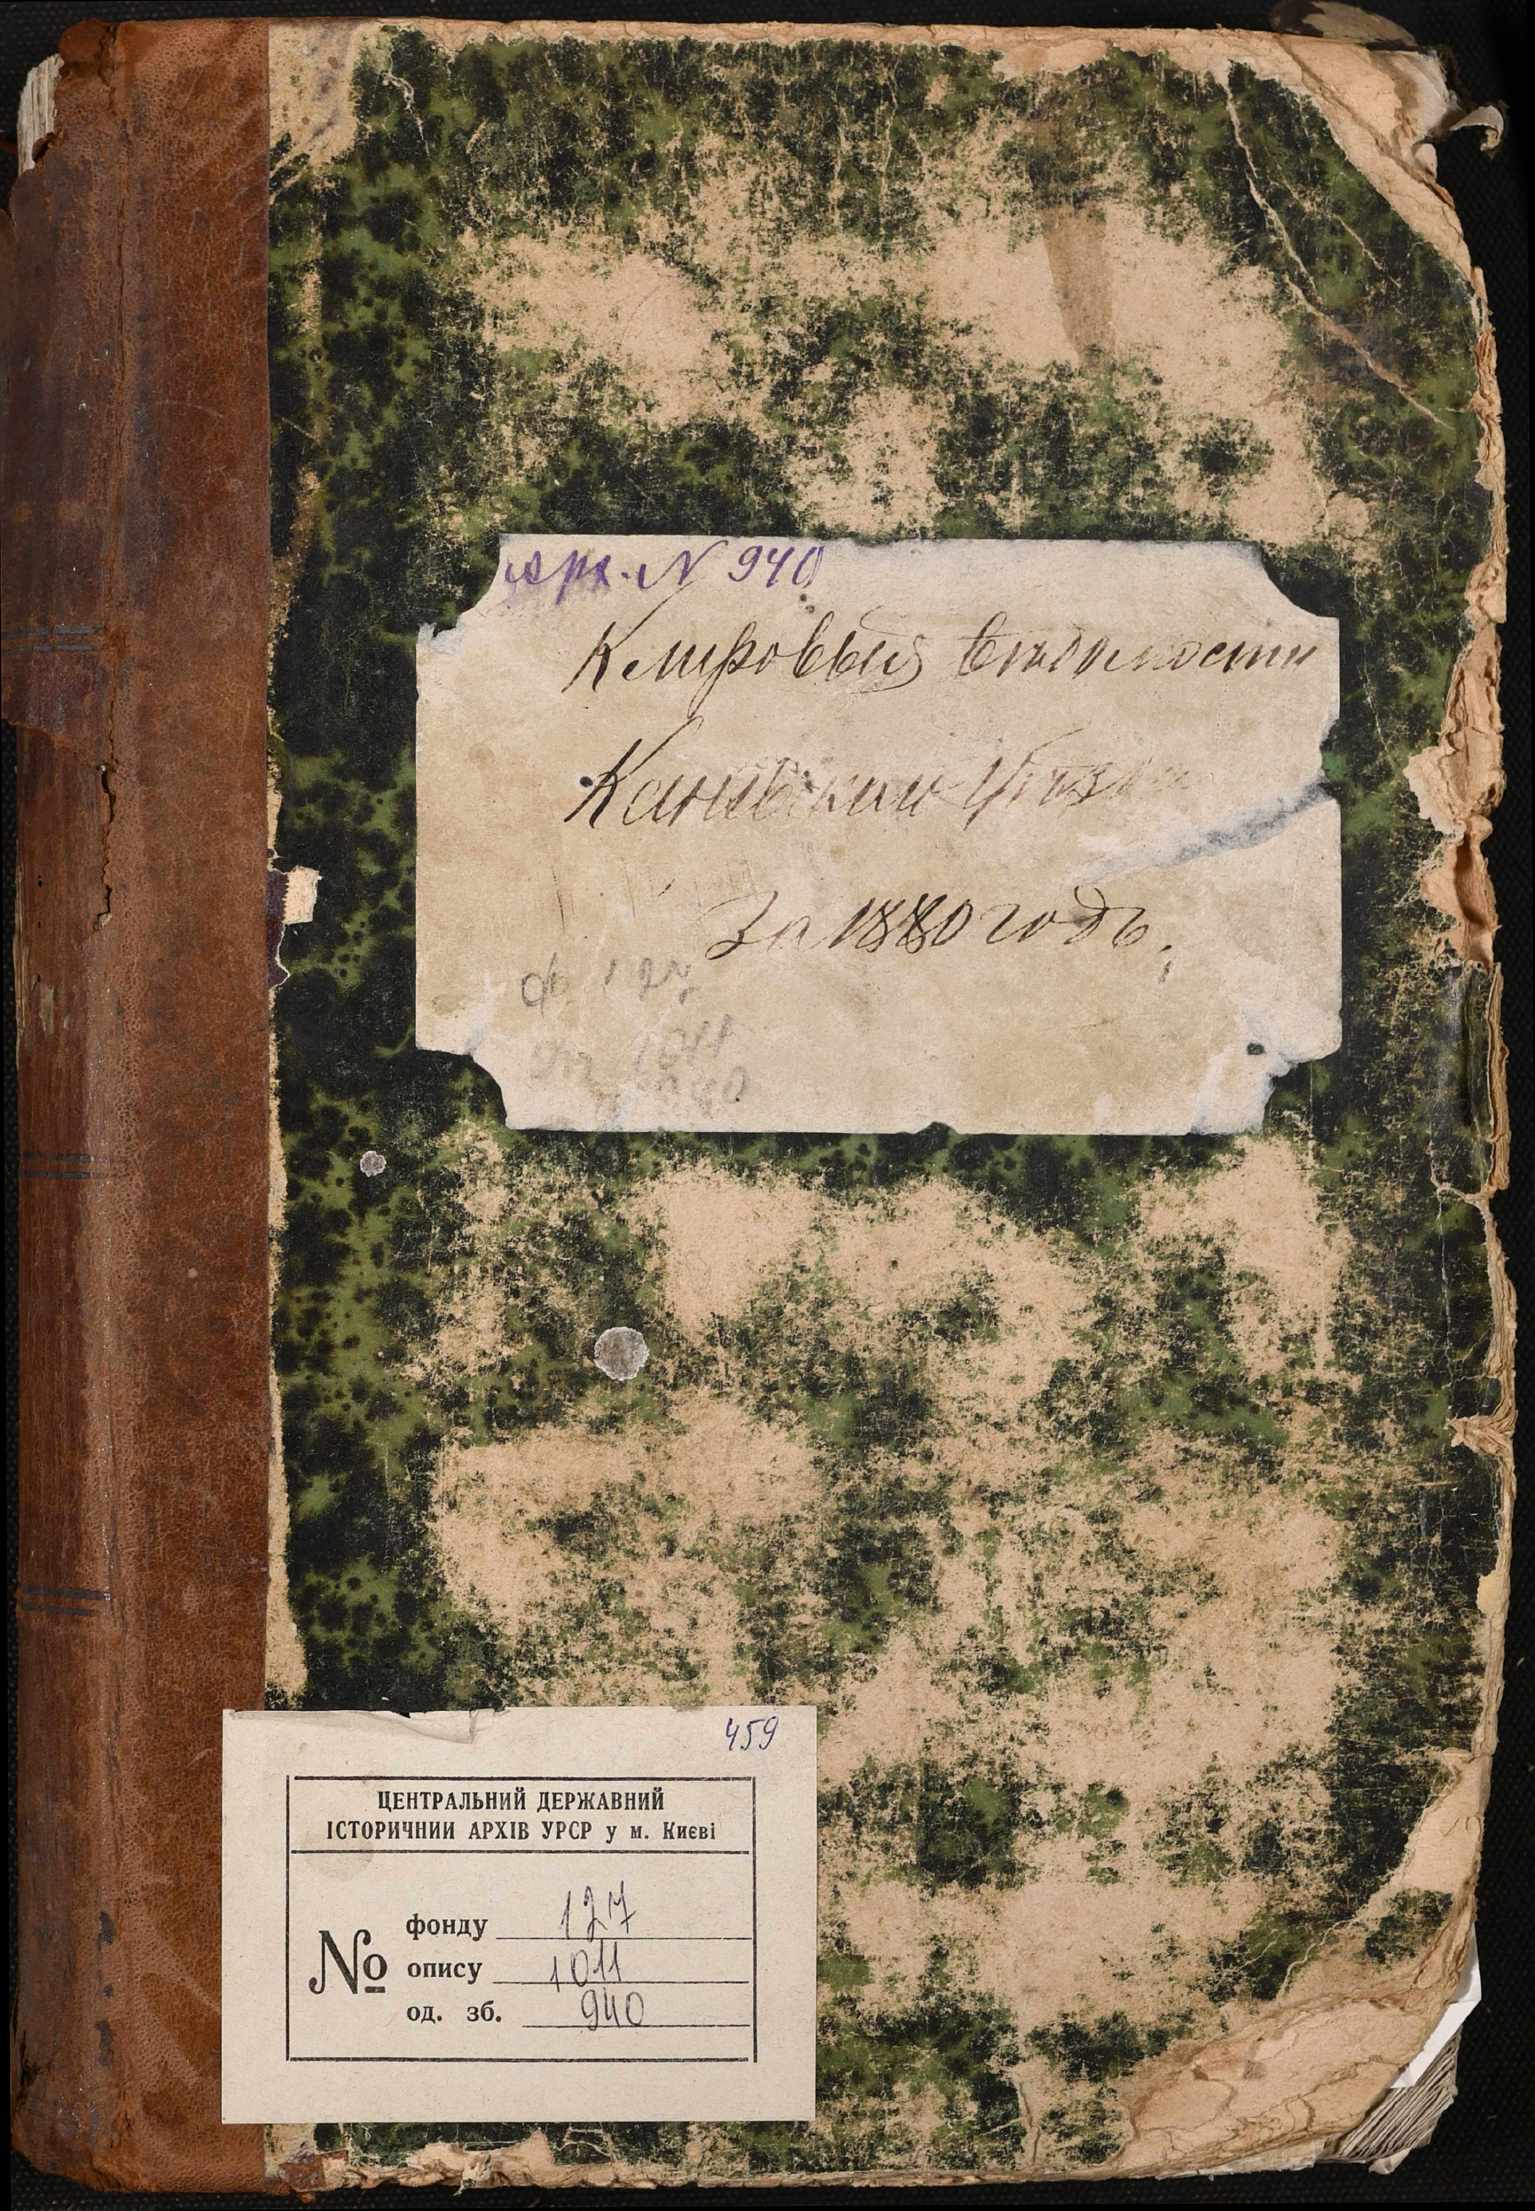 арх. № 940
Клировыя вѣдомости
Каневскаго уѣзда
За 1880 годъ.
ф. 127
оп 1011
940
459
ЦЕНТРАЛЬНИЙ ДЕРЖАВНИЙ
ІСТОРИЧНИЙ АРХІВ УРСР у м. Києві
№
фонду 127
опису 1011
од. зб. 940